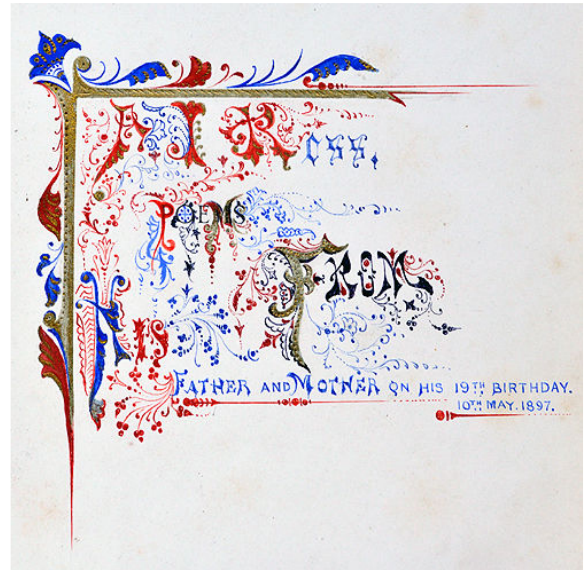 A J Ross.
POEMS
FROM
HIS
FATHER AND MOTHER ON HIS 19TH BIRTHDAY.
10TH MAY. 1897.